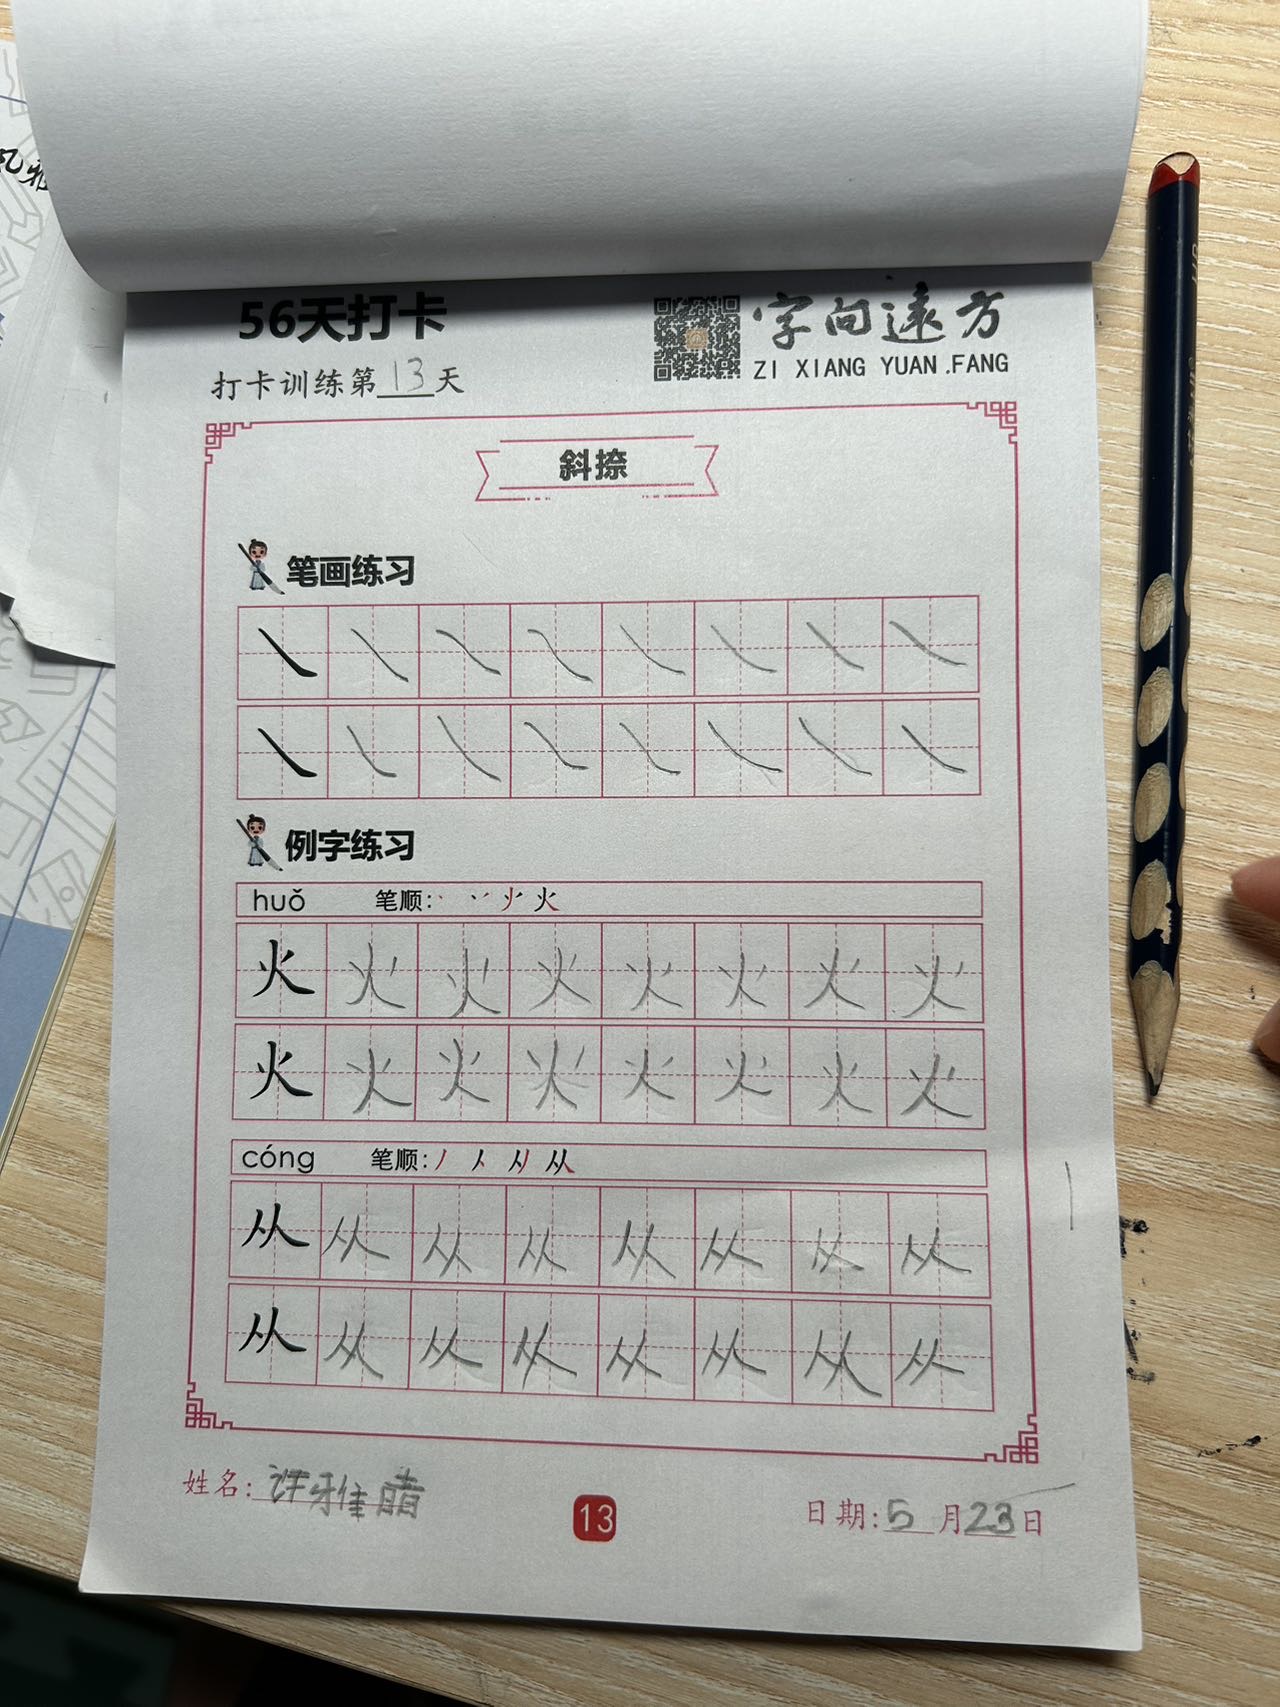 56天打卡
字向遠方
ZI XIANG YUAN .FANG
打卡训练第13天
斜捺
笔画练习
例字练习
huǒ 笔顺: 火
火 火 火 火 火 火 火 火
火 火 火 火 火 火 火 火
cóng 笔顺: 从
从 从 从 从 从 从 从 从
从 从 从 从 从 从 从 从
姓名: 许雅晴
13
日期: 5月23日